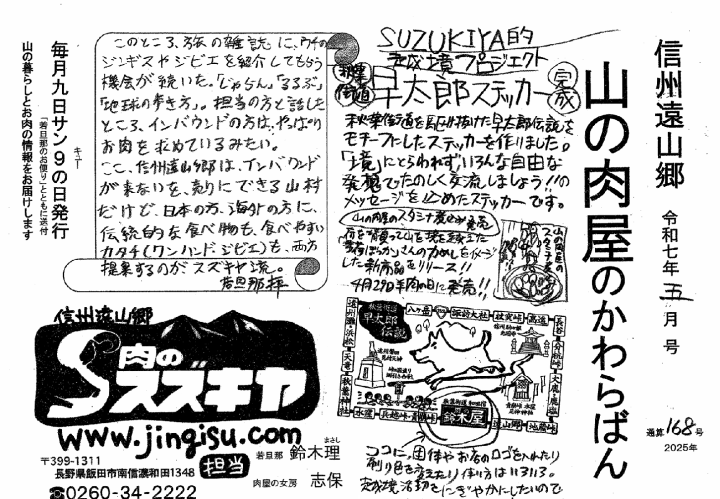 信州遠山郷
山の肉屋のかわらばん
令和七年五月号
通算168号
2025年
SUZUKIYA的
越境プロジェクト
秋葉街道
早太郎ステッカー
完成
秋葉街道を駆け抜けた早太郎伝説を
モチーフにしたステッカーを作りました。
「境」にとらわれずいろんな自由な
発想でたのしく交流しましょう!!の
メッセージを込めたステッカーです。
山の肉屋のスタミナ煮が発売
荷を背負って山を境を越えた
した新商品をリリース!!
4月29日羊肉の日に発売!!
山の肉屋の
スタミナ煮
秋葉街道
早太郎
伝説
八ヶ岳
諏訪大社
杖突峠
高遠
長谷
分杭峠
大鹿
鹿塩
地蔵峠
遠山郷
鈴木屋
青崩峠
兵越峠
水窪
秋葉神社
天竜
遠州灘浜松
ココに、団体やお店のロゴを入れたり
刷り色を変えたり作り方はいろいろ。
越境活動をにぎやかにしたいので
このところ、旅の雑誌に、ウチの
ジンギスやジビエを紹介してもらう
機会が続いた。「じゃらん」「るるぶ」
「地球の歩き方」。担当の方と話した
ところ、インバウンドの方は、やっぱり
お肉を求めているみたい。
ここ、信州遠山郷は、インバウンド
が来ないを、売りにできる山村
だけど、日本の方、海外の方に、
伝統的な食べ物も、食べやすい
カタチ(ワンハンドジビエ)も、両方
提案するのがスズキヤ流。
若旦那拝
毎月九日サン9の日発行
キュー
「若旦那のお便り」とともに送付
山の暮らしとお肉の情報をお届けします
信州遠山郷
肉の
スズキヤ
www.jingisu.com
〒399-1311
長野県飯田市南信濃和田1348
☎0260-34-2222
担当
若旦那 鈴木理
まさし
肉屋の女房 志保